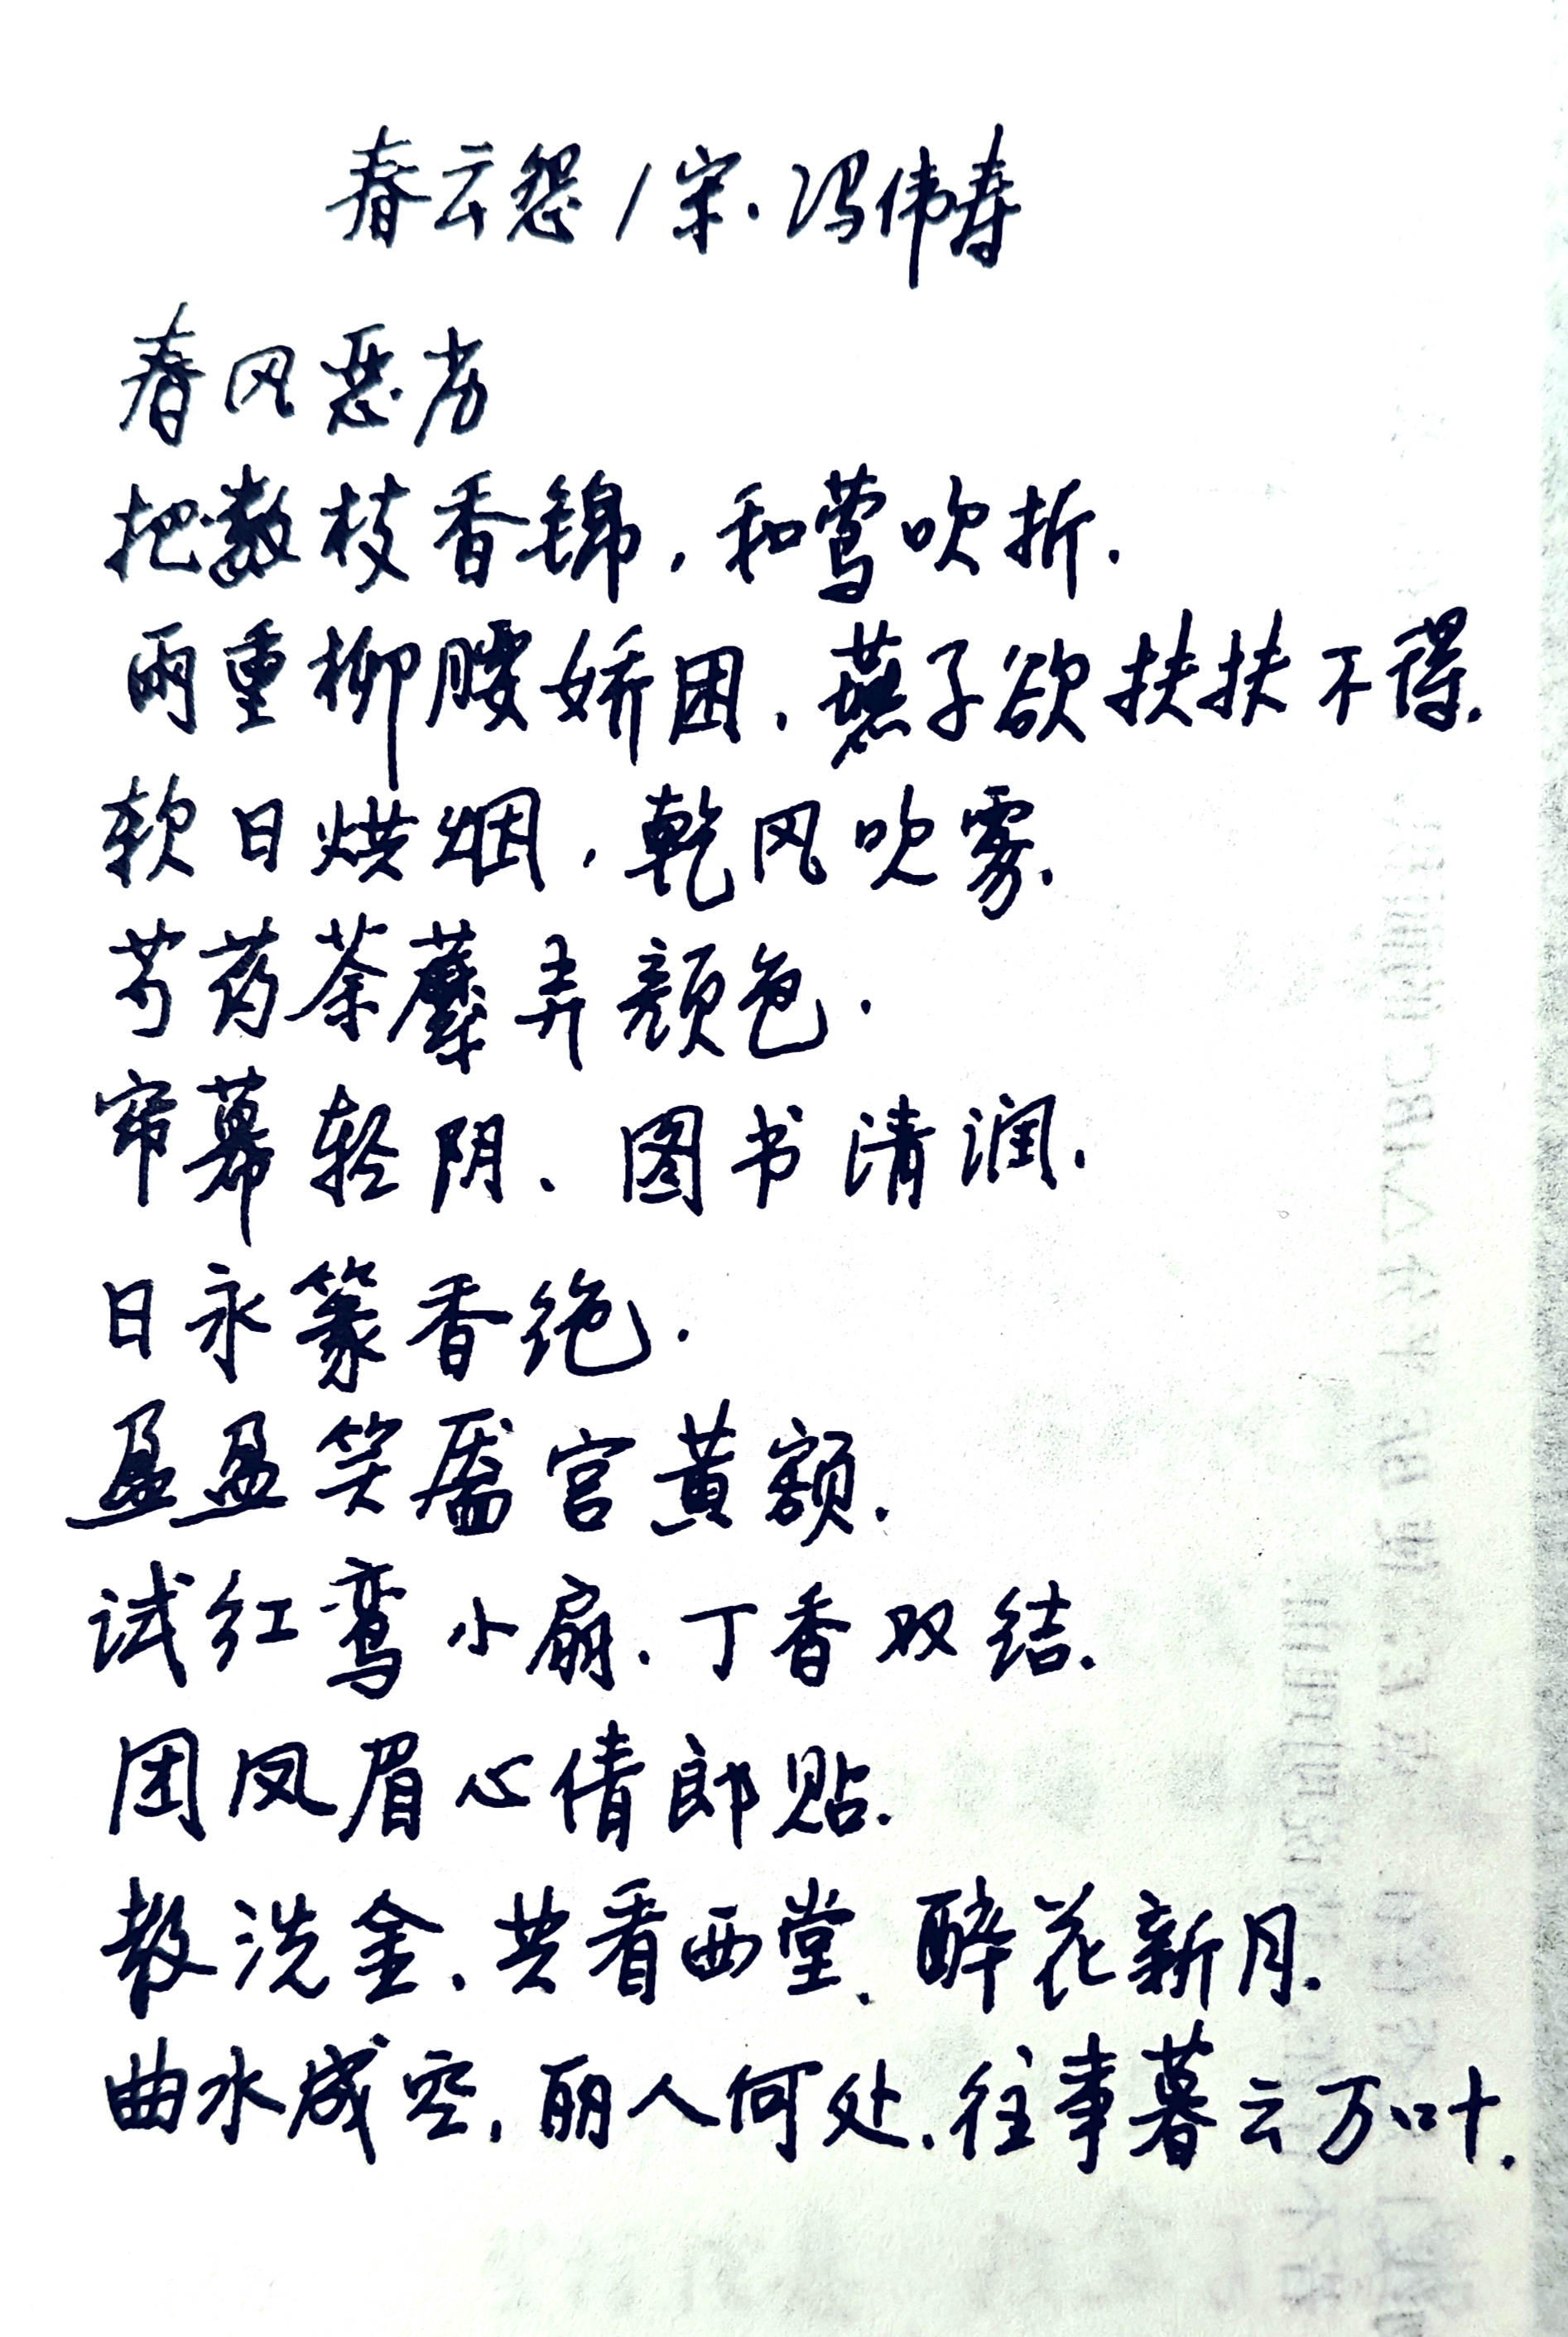 春云怨/宋·冯伟寿
春风恶劣
把数枝香锦,和莺吹折.
雨重柳腰娇困,燕子欲扶扶不得.
软日烘烟,乾风吹雾.
芍药荼蘼弄颜色.
帘幕轻阴、图书清润.
日永篆香绝.
盈盈笑靥宫黄额.
试红鸾小扇.丁香双结.
团凤眉心倩郎贴.
教洗金、共看西堂、醉花新月.
曲水成空,丽人何处,往事暮云万叶.